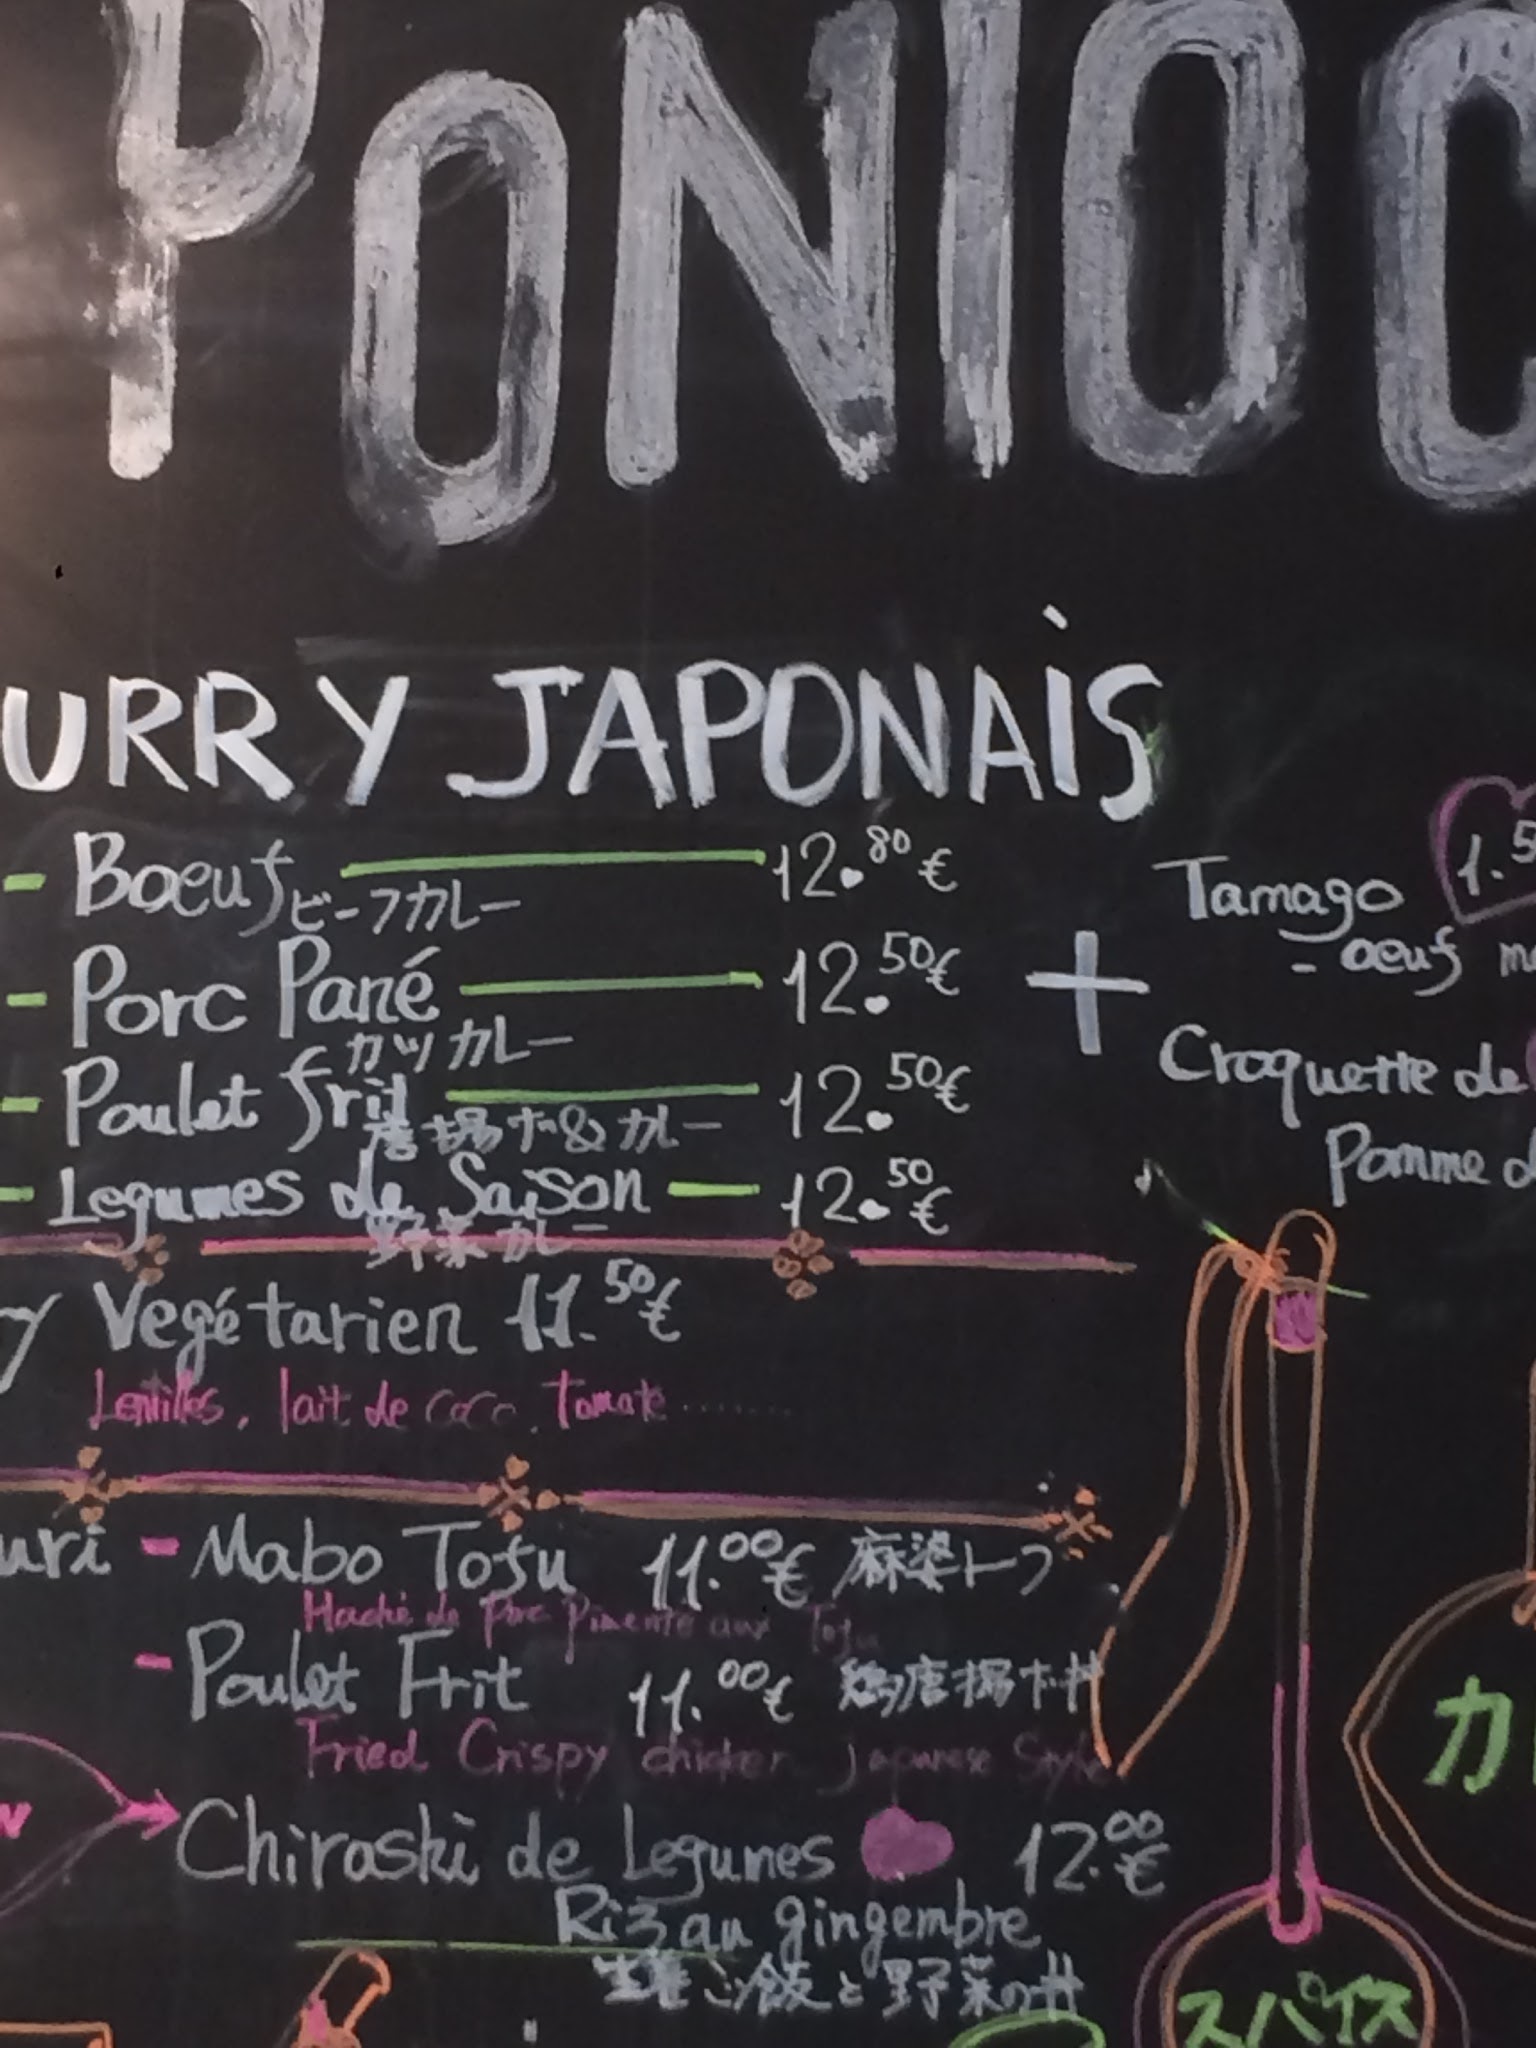 PONIOC
URRY JAPONAIS
- Boeuf 12.80 €
ビーフカレー
- Porc Pané 12.50 €
カツカレー
- Poulet frit 12.50 €
唐揚げ&カレー
- Legumes de Saison 12.50 €
野菜カレー
+
Tamago 1.5
- oeuf m
Croquette de
Pomme d
y Vegétarien 11.50 €
Lentilles, lait de coco, tomate ........
uri - Mabo Tofu 11.00 € 麻婆トーフ
Haché de Porc Pimenté aux Tofu
- Poulet Frit 11.00 € 鶏唐揚げ丼
Fried Crispy chicken japanese Style
Chiraski de Legumes 12.00 €
Riz au gingembre
生姜ご飯と野菜の丼
カ
スパイス